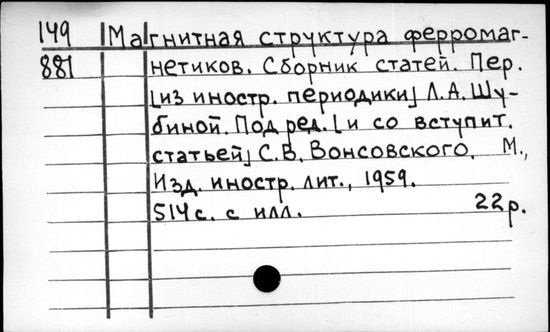 149 Магнитная структура ферромаг-
881 нетиков. Сборник статей. Пер.
[из иностр. периодики] Л.А. Шу-
биной. Под ред. [и со вступит.
статьей] С.В. Вонсовского. М.,
Изд. иностр. лит., 1959.
514 с. с илл. 22 р.